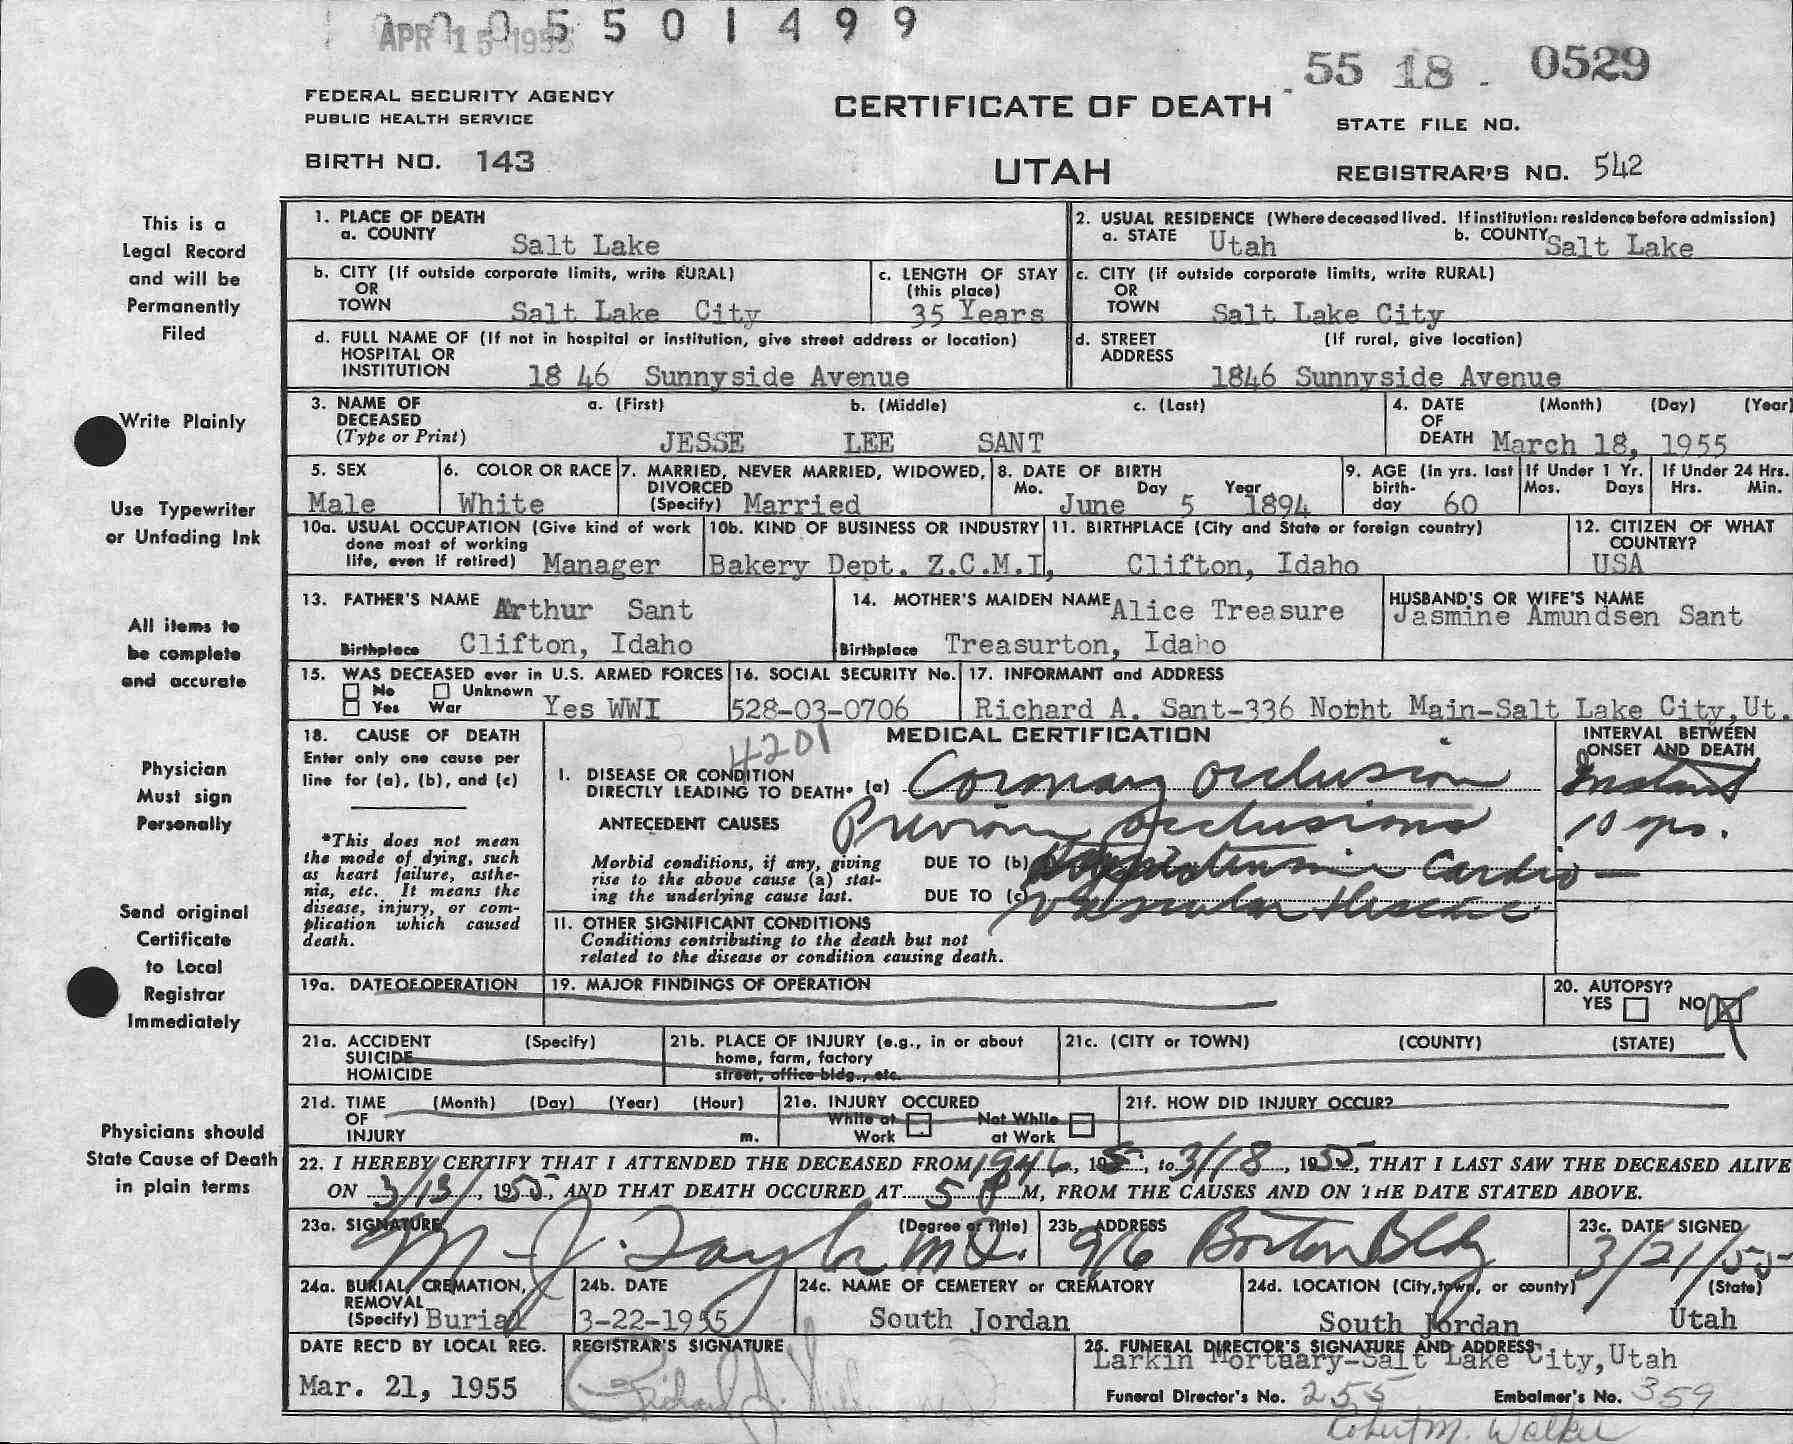 APR 15 1955 5 5 0 1 4 9 9
55 18 - 0529
FEDERAL SECURITY AGENCY
PUBLIC HEALTH SERVICE
CERTIFICATE OF DEATH
STATE FILE NO.
BIRTH NO. 143
UTAH
REGISTRAR'S NO. 542
This is a
Legal Record
and will be
Permanently
Filed
Write Plainly
Use Typewriter
or Unfading Ink
All items to
be complete
and accurate
Physician
Must sign
Personally
Send original
Certificate
to Local
Registrar
Immediately
Physicians should
State Cause of Death
in plain terms
1. PLACE OF DEATH
a. COUNTY Salt Lake
2. USUAL RESIDENCE (Where deceased lived. If institution: residence before admission)
a. STATE Utah b. COUNTY Salt Lake
b. CITY (If outside corporate limits, write RURAL)
OR
TOWN Salt Lake City
c. LENGTH OF STAY
(this place)
35 Years
c. CITY (if outside corporate limits, write RURAL)
OR
TOWN Salt Lake City
d. FULL NAME OF (If not in hospital or institution, give street address or location)
HOSPITAL OR
INSTITUTION 18 46 Sunnyside Avenue
d. STREET (If rural, give location)
ADDRESS
1846 Sunnyside Avenue
3. NAME OF a. (First) b. (Middle) c. (Last)
DECEASED
(Type or Print) JESSE LEE SANT
4. DATE (Month) (Day) (Year)
OF
DEATH March 18, 1955
5. SEX
Male
6. COLOR OR RACE
White
7. MARRIED, NEVER MARRIED, WIDOWED,
DIVORCED
(Specify) Married
8. DATE OF BIRTH
Mo. Day Year
June 5 1894
9. AGE (in yrs. last
birth-
day 60
If Under 1 Yr.
Mos. Days
If Under 24 Hrs.
Hrs. Min.
10a. USUAL OCCUPATION (Give kind of work
done most of working
life, even if retired) Manager
10b. KIND OF BUSINESS OR INDUSTRY
Bakery Dept. Z.C.M.I,
11. BIRTHPLACE (City and State or foreign country)
Clifton, Idaho
12. CITIZEN OF WHAT
COUNTRY?
USA
13. FATHER'S NAME Arthur Sant
Birthplace Clifton, Idaho
14. MOTHER'S MAIDEN NAME Alice Treasure
Birthplace Treasurton, Idaho
HUSBAND'S OR WIFE'S NAME
Jasmine Amundsen Sant
15. WAS DECEASED ever in U.S. ARMED FORCES
No Unknown
Yes War Yes WWI
16. SOCIAL SECURITY No.
528-03-0706
17. INFORMANT and ADDRESS
Richard A. Sant-336 Notht Main-Salt Lake City,Ut.
18. CAUSE OF DEATH
Enter only one cause per
line for (a), (b), and (c)
*This does not mean
the mode of dying, such
as heart failure, asthe-
nia, etc. It means the
disease, injury, or com-
plication which caused
death.
MEDICAL CERTIFICATION
4201
INTERVAL BETWEEN
ONSET AND DEATH
I. DISEASE OR CONDITION
DIRECTLY LEADING TO DEATH* (a) Coronary occlusion Instant
ANTECEDENT CAUSES Previous occlusions 10 yrs.
Morbid conditions, if any, giving
rise to the above cause (a) stat-
ing the underlying cause last.
DUE TO (b) Hypertensive Cardio-
DUE TO (c) Vascular disease
II. OTHER SIGNIFICANT CONDITIONS
Conditions contributing to the death but not
related to the disease or condition causing death.
19a. DATE OF OPERATION
19. MAJOR FINDINGS OF OPERATION
20. AUTOPSY?
YES NO X
21a. ACCIDENT (Specify)
SUICIDE
HOMICIDE
21b. PLACE OF INJURY (e.g., in or about
home, farm, factory
street, office bldg., etc.
21c. (CITY or TOWN) (COUNTY) (STATE)
21d. TIME (Month) (Day) (Year) (Hour)
OF
INJURY m.
21e. INJURY OCCURED
While at Not While
Work at Work
21f. HOW DID INJURY OCCUR?
22. I HEREBY CERTIFY THAT I ATTENDED THE DECEASED FROM 1946, 195 , to 3/18, 1955, THAT I LAST SAW THE DECEASED ALIVE
ON 3/13, 1955, AND THAT DEATH OCCURED AT 5 P M, FROM THE CAUSES AND ON THE DATE STATED ABOVE.
23a. SIGNATURE (Degree or title)
M. J. Taylor M.D.
23b. ADDRESS
916 Boston Bldg
23c. DATE SIGNED
3/21/55
24a. BURIAL, CREMATION,
REMOVAL
(Specify) Burial
24b. DATE
3-22-1955
24c. NAME OF CEMETERY or CREMATORY
South Jordan
24d. LOCATION (City, town, or county) (State)
South Jordan Utah
DATE REC'D BY LOCAL REG.
Mar. 21, 1955
REGISTRAR'S SIGNATURE
Richard J.
25. FUNERAL DIRECTOR'S SIGNATURE AND ADDRESS
Larkin Mortuary-Salt Lake City,Utah
Funeral Director's No. 255 Embalmer's No. 359
Robert M. Walker